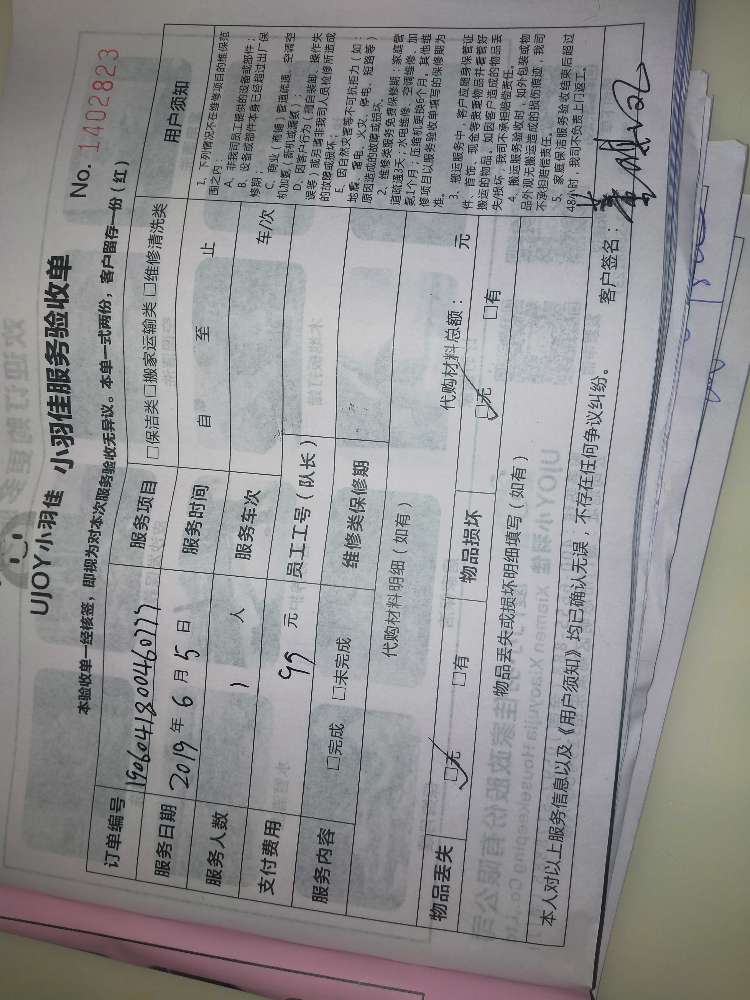 UJOY小羽佳 小羽佳服务验收单
No. 1402823
本验收单一经核签，即视为对本次服务验收无异议。本单一式两份，客户留存一份（红）
订单编号 1906041800460777 服务项目 □保洁类□搬家运输类 □维修清洗类
服务日期 2019 年 6 月 5 日 服务时间 自 至 止
服务人数 1 人 服务车次 车/次
支付费用 99 元 员工工号（队长）
服务内容 □完成 □未完成 维修类保修期
代购材料明细（如有） 代购材料总额： 元
物品丢失 ☑无 □有 物品损坏 ☑无 □有
物品丢失或损坏明细填写（如有）
本人对以上服务信息以及《用户须知》均已确认无误，不存在任何争议纠纷。
客户签名：
用户须知
1、下列情况不在维修项目的维保范
围之内：
A、非我司员工提供的设备或部件；
B、设备或部件本身已经超过出厂保
修期；
C、商业（商铺）管道疏通、空调空
机加氨（新机或漏氨）；
D、因客户人为（擅自装卸、操作失
误等）或另请非我司人员检修所造成
的故障或损坏；
E、因自然灾害等不可抗拒力（如：
地震、雷电、火灾、停电、短路等）
原因造成的故障或损坏。
2、维修类服务免费保修期：家庭管
道疏通3天；水电维修、空调维修、加
氨1个月；压缩机更换6个月，其他维
修项目以服务验收单填写的保修期为
准。
3、搬运服务中，客户应随身保管证
件、首饰、现金等贵重物品并看管好
搬运的物品，如因客户造成的物品丢
失/损坏，我司不承担赔偿责任。
4、搬运服务验收时，如外包装或物
品外观无搬运造成的损伤痕迹，我司
不承担赔偿责任。
5、家庭保洁服务验收结束后超过
48小时，我司不负责上门返工。